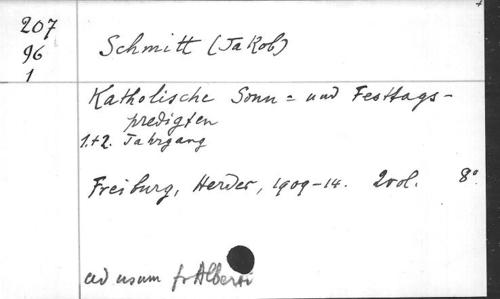 207
96
1
Schmitt (Jakob)
Katholische Sonn= und Festtags-
predigten
1.+2. Jahrgang
Freiburg, Herder, 1909-14. 2vol. 8°
ad usum fr Alberti